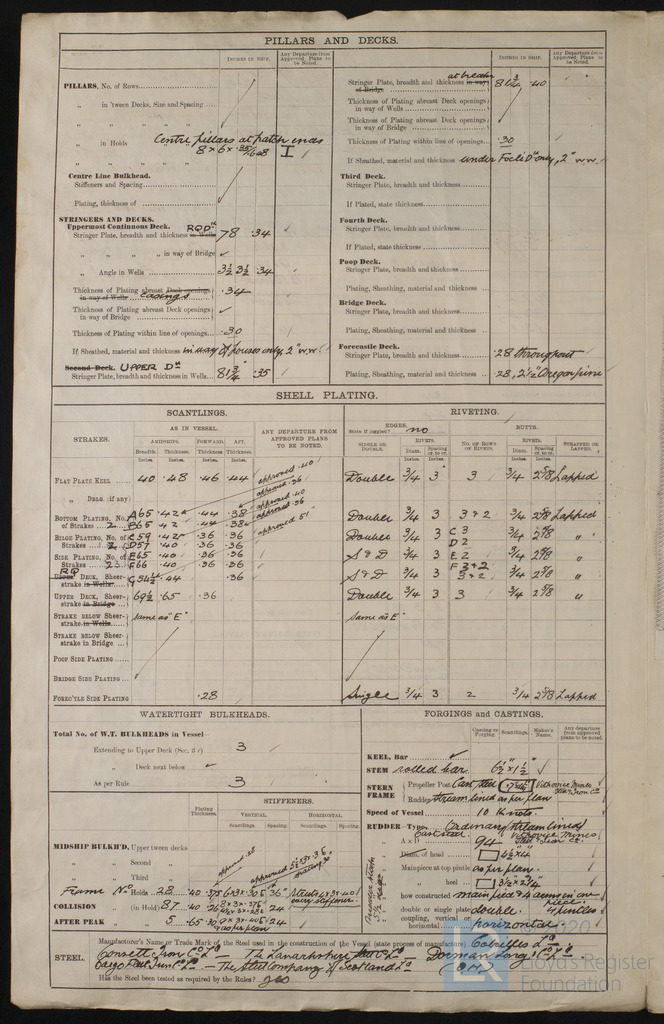 PILLARS AND DECKS.
INCHES IN SHIP.
Any Departure from Approved Plans to be Noted.
PILLARS, No. of Rows
„ in 'tween Decks, Size and Spacing
„ „ „ „
„ in Holds Centre pillars at hatch ends
„ „ „ „ 8 x 6 x
Centre Line Bulkhead.
Stiffeners and Spacing
Plating, thickness of
STRINGERS AND DECKS.
Uppermost Continuous Deck. RQDk
Stringer Plate, breadth and thickness in Wells 78 .34
„ „ „ „ in way of Bridge
„ Angle in Wells 3½ 3½ .34
Thickness of Plating abreast Deck openings
in way of Wells casings .34
Thickness of Plating abreast Deck openings
in way of Bridge
Thickness of Plating within line of openings .30
If Sheathed, material and thickness in way of houses only, 2" w.w.
Second Deck. UPPER Dk
Stringer Plate, breadth and thickness in Wells 81¾ .35
INCHES IN SHIP.
Any Departure from Approved Plans to be Noted.
Stringer Plate, breadth and thickness in way of Bridge at break 81¾ .40
Thickness of Plating abreast Deck openings
in way of Wells
Thickness of Plating abreast Deck openings
in way of Bridge
Thickness of Plating within line of openings .30
If Sheathed, material and thickness under Focle Dk only, 2" w.w.
Third Deck.
Stringer Plate, breadth and thickness
If Plated, state thickness
Fourth Deck.
Stringer Plate, breadth and thickness
If Plated, state thickness
Poop Deck.
Stringer Plate, breadth and thickness
Plating, Sheathing, material and thickness
Bridge Deck.
Stringer Plate, breadth and thickness
Plating, Sheathing, material and thickness
Forecastle Deck.
Stringer Plate, breadth and thickness .28 throughout
Plating, Sheathing, material and thickness .28, 2½" Oregon pine
SHELL PLATING.
SCANTLINGS. RIVETING.
STRAKES. AS IN VESSEL. ANY DEPARTURE FROM APPROVED PLANS TO BE NOTED.
AMIDSHIPS. FORWARD. AFT.
Breadth. Thickness. Thickness. Thickness.
Inches. Inches. Inches. Inches.
EDGES. State if joggled? no BUTTS.
SINGLE OR DOUBLE. RIVETS. Diam. Spacing cr. to cr. NO. OF ROWS OF RIVETS. RIVETS. Diam. Spacing cr. to cr. STRAPPED OR LAPPED.
FLAT PLATE KEEL 40 .48 .46 .44 approved .40 Double ¾ 3 3 ¾ 2⅝ Lapped
„ DBLG. (if any) approved .36
BOTTOM PLATING, No. of Strakes 2 A 65 .42 .44 .38 approved .40 Double ¾ 3 3 & 2 ¾ 2⅝ Lapped
B 65 .42 .44 .38 approved .36
BILGE PLATING, No. of Strakes 2 C 59 .42 .36 .36 approved .51 Double ¾ 3 C 3 ¾ 2⅝ „
D 57 .40 .36 .36 D 2
SIDE PLATING, No. of Strakes E 65 .40 .36 .36 S & D ¾ 3 E 2 ¾ 2⅝ „
F 66 .40 .36 .36 F 3 & 2
RQ UPPER DECK, Sheer-strake in Wells G 54½ .44 .36 S & D ¾ 3 3 & 2 ¾ 2⅝ „
UPPER DECK, Sheer-strake in Bridge 69½ .65 .36 Double ¾ 3 3 ¾ 2⅝ „
STRAKE BELOW Sheer-strake in Wells same as "E" same as "E"
STRAKE BELOW Sheer-strake in Bridge
POOP SIDE PLATING
BRIDGE SIDE PLATING
FOREC'TLE SIDE PLATING .28 Single ¾ 3 2 ¾ 2⅝ Lapped
WATERTIGHT BULKHEADS.
Total No. of W.T. BULKHEADS in Vessel
Extending to Upper Deck (Sec. 3 c) 3
„ Deck next below
As per Rule 3
Plating Thickness. STIFFENERS.
VERTICAL. HORIZONTAL.
Scantlings. Spacing. Scantlings. Spacing.
MIDSHIP BULKH'D, Upper tween decks
„ „ Second „
„ „ Third „
Frame No Holds 28
COLLISION „ (in Hold) 87
AFTER PEAK „ 5
as per plan
FORGINGS and CASTINGS.
Casting or Forging. Scantlings. Maker's Name. Any departure from approved plans to be noted.
KEEL, Bar
STEM rolled bar 6½" x 1½"
STERN FRAME
Propeller Post Cast steel
Rudder „ streamlined as per plan
Speed of Vessel 10 Knots.
RUDDER—Type Ordinary (streamlined)
„ A x D 94
„ Diam. of head 4½" x 4"
„ Mainpiece at top pintle as per plan
„ „ heel 3½" x 2¼"
„ how constructed main piece & 4 arms in one piece
„ double or single plate double. 4 pintles
„ coupling, vertical or horizontal horizontal
STEEL Manufacturer's Name or Trade Mark of the Steel used in the construction of the Vessel (state process of manufacture) Colvilles Ld
Consett Iron Co Ld — The Lanarkshire Steel Co Ld — Dorman Long & Co Ld
Cargo Fleet Iron Co Ld — The Steel Company of Scotland Ld (O.H.)
Has the Steel been tested as required by the Rules? yes
2020
Lloyd's Register
Foundation